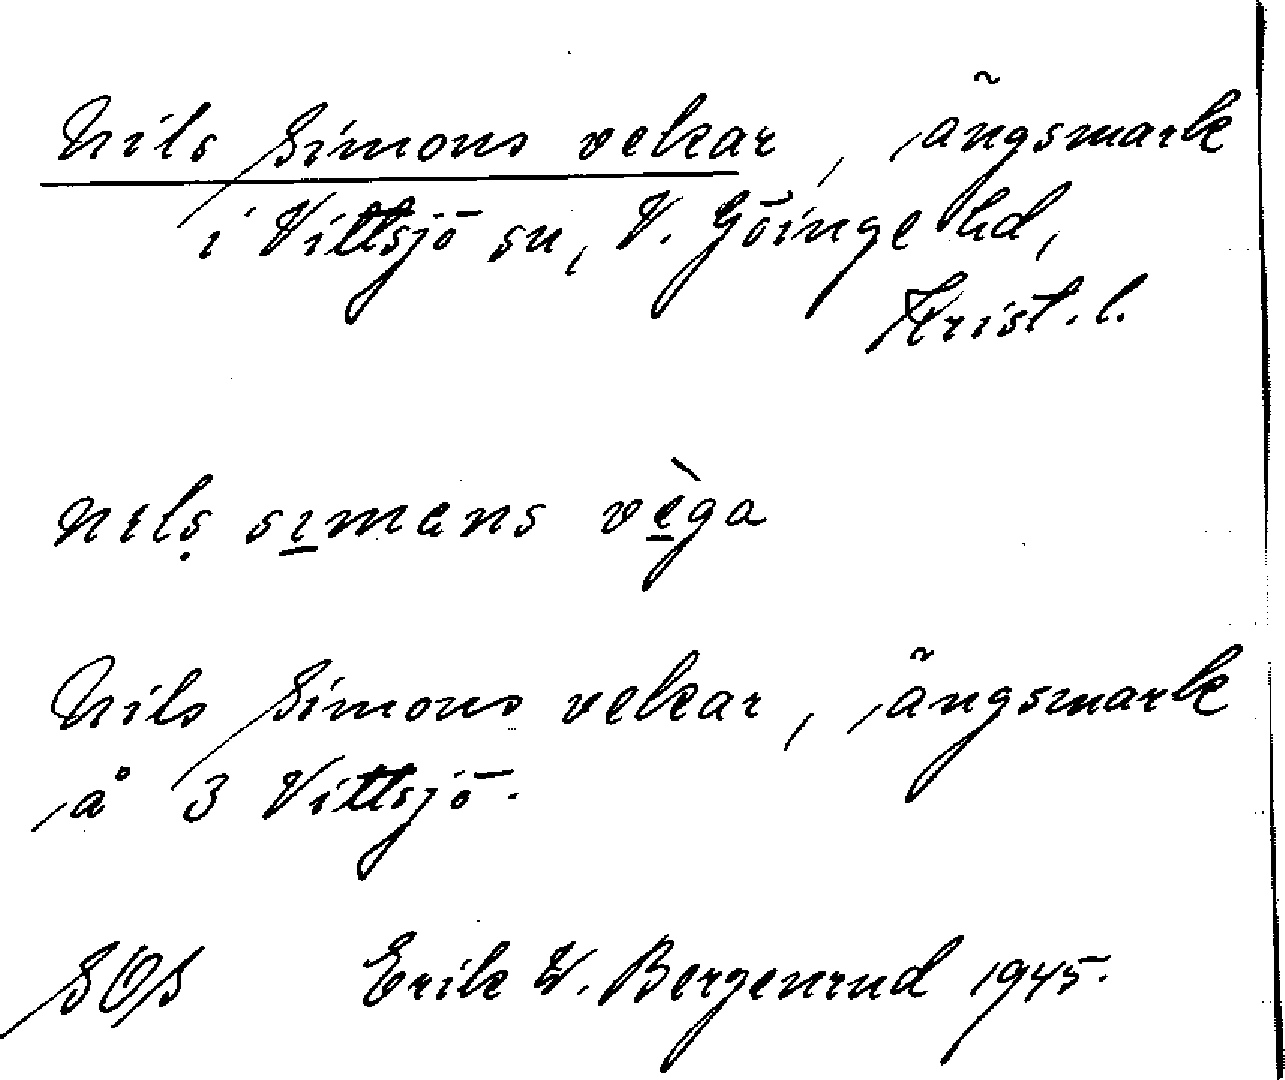 Nils Simons vekar, ängsmark
i Vittsjö sn, V. Göinge hd,
Krist. l.
nɪls sɪmɑns vèga
Nils Simons vekar, ängsmark
å 3 Vittsjö.
SOS Erik W. Bergenrud 1945.